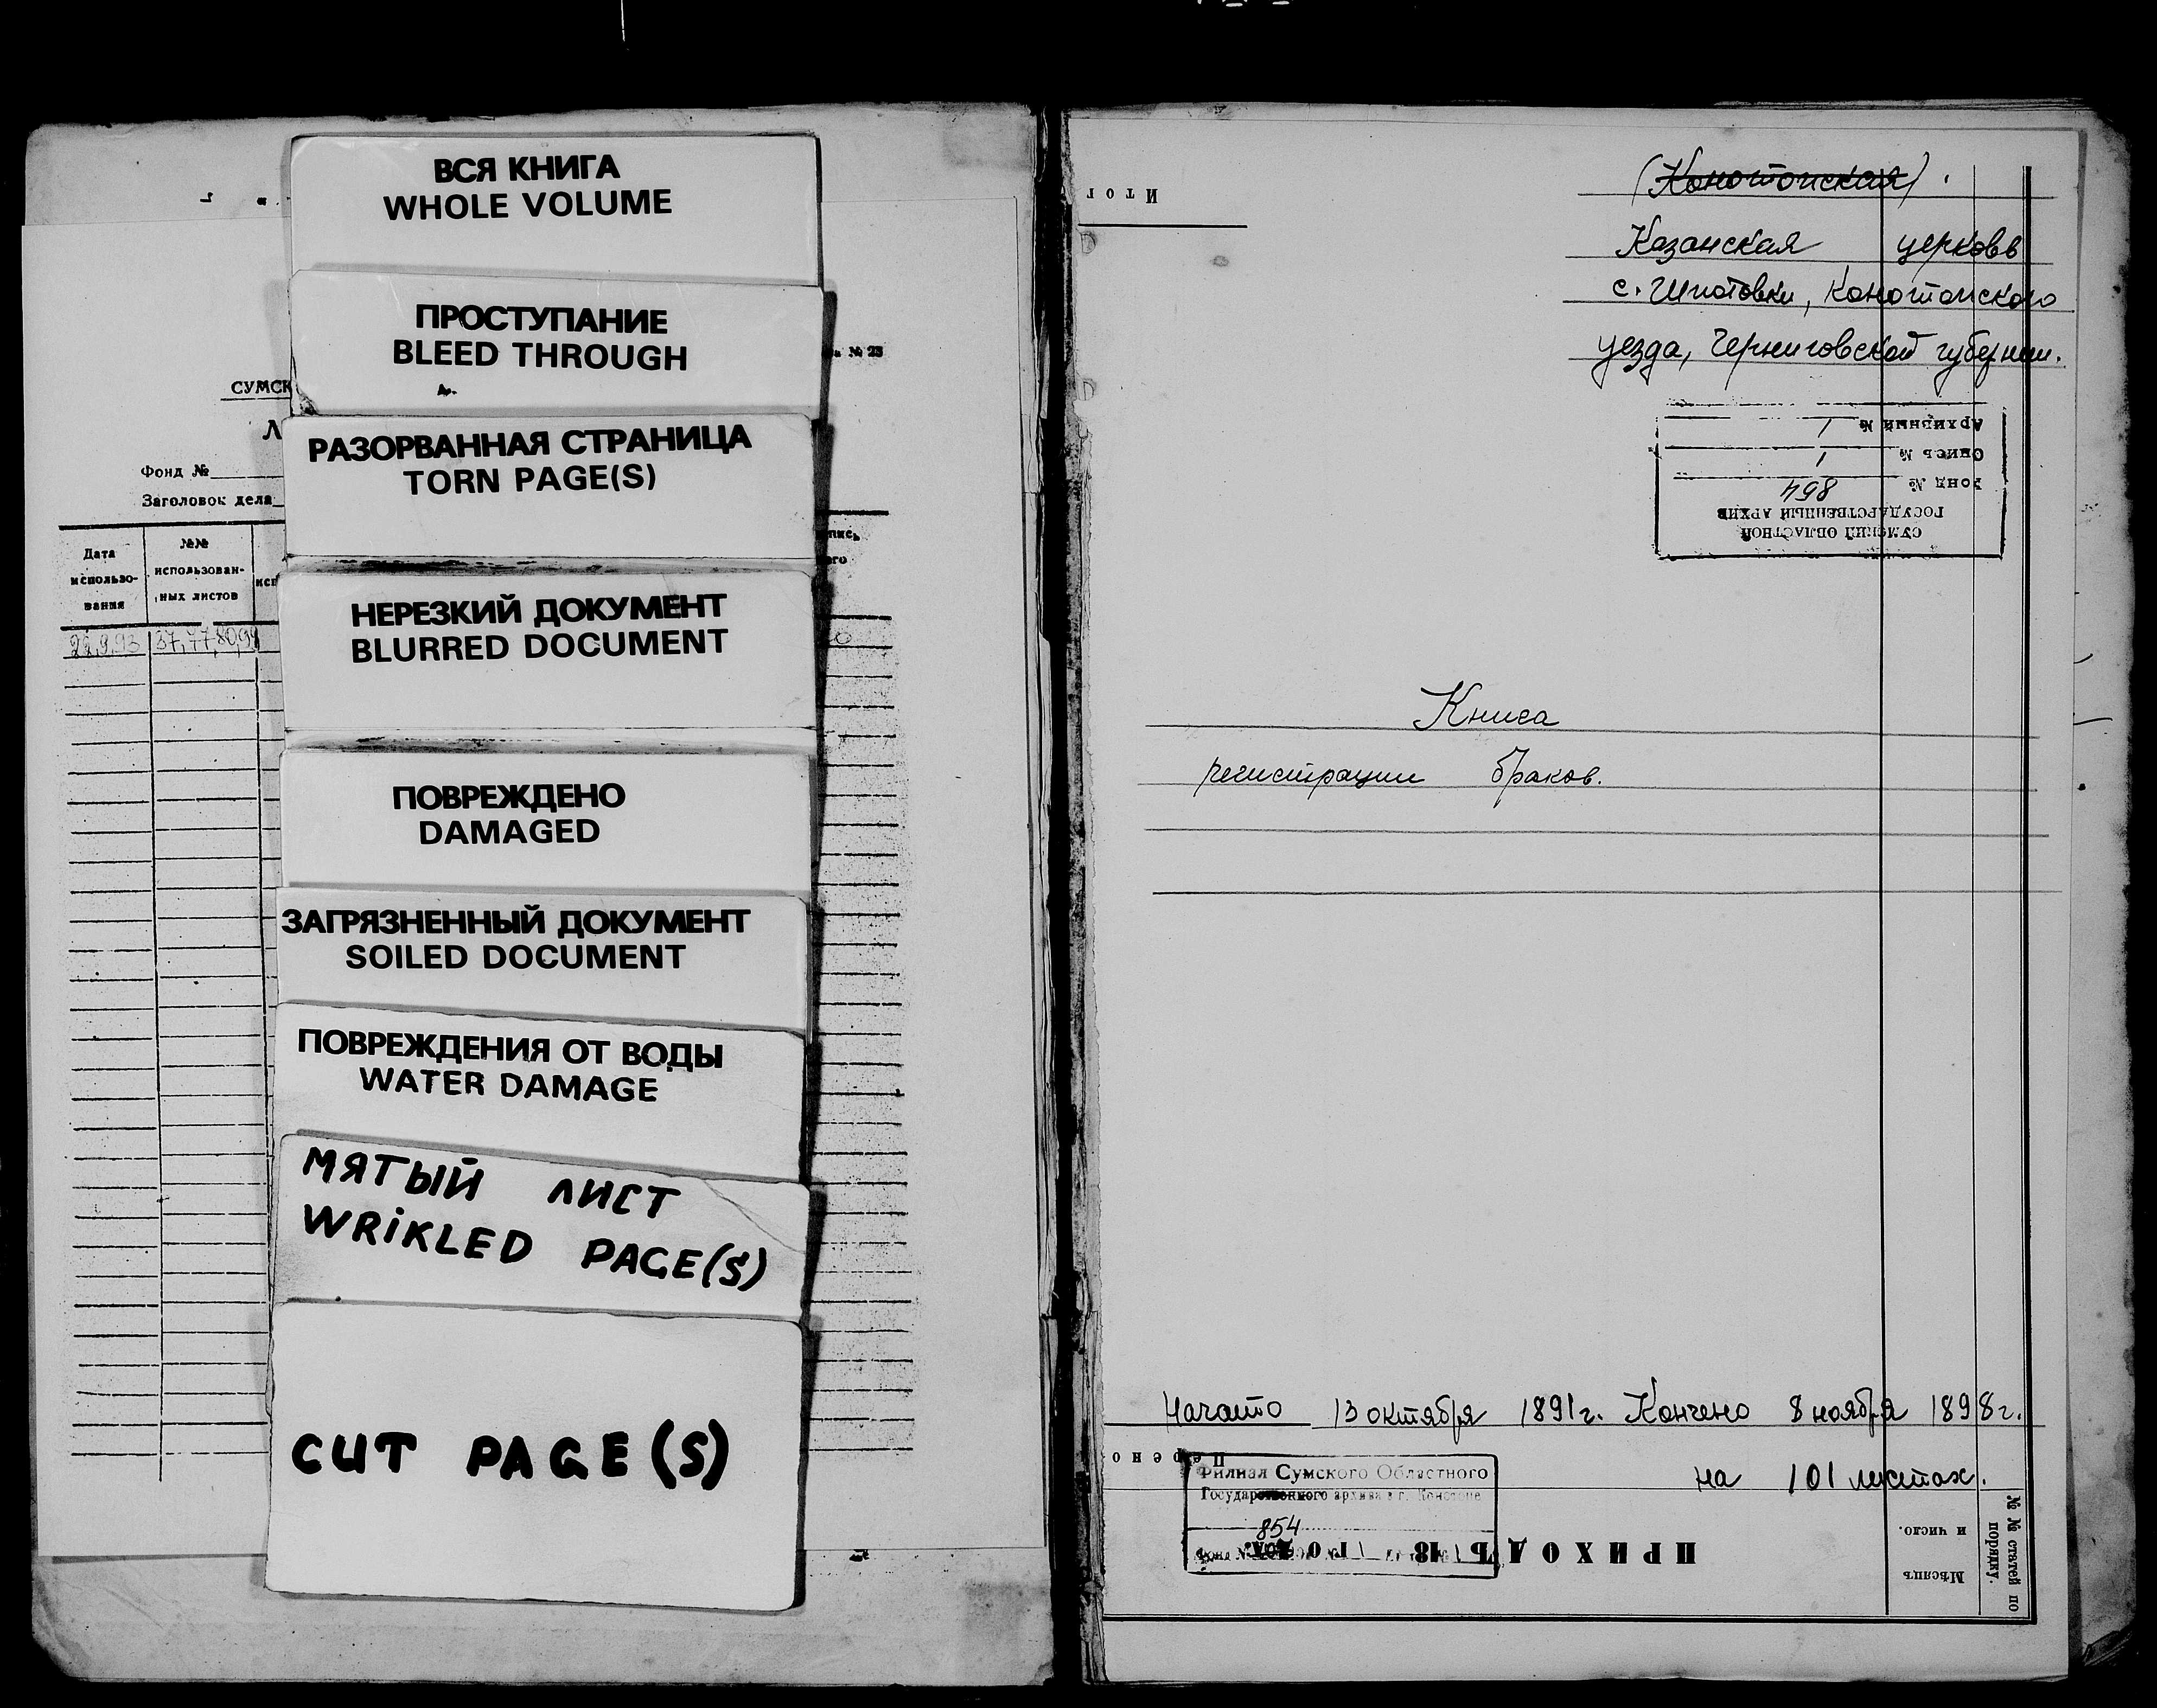 ВСЯ КНИГА
WHOLE VOLUME
ПРОСТУПАНИЕ
BLEED THROUGH
№ 23
СУМСК
Л
РАЗОРВАННАЯ СТРАНИЦА
TORN PAGE(S)
Фонд №
Заголовок дела
Дата
использо-
вания
№№
использован-
ных листов
исп
НЕРЕЗКИЙ ДОКУМЕНТ
BLURRED DOCUMENT
22.9.93 37,77,80,99
ПОВРЕЖДЕНО
DAMAGED
ЗАГРЯЗНЕННЫЙ ДОКУМЕНТ
SOILED DOCUMENT
ПОВРЕЖДЕНИЯ ОТ ВОДЫ
WATER DAMAGE
МЯТЫЙ ЛИСТ
WRIKLED PAGE(S)
CUT PAGE(S)
Итог
(Конотопская).
Казанская церковь
с. Шпотовки, Конотопского
уезда, Черниговской губернии.
СУМСКИЙ ОБЛАСТНОЙ
ГОСУДАРСТВЕННЫЙ АРХИВ
Фонд № 854
Опись № 1
Архивный № 1
Книга
регистрации браков.
Начато 13 октября 1891 г. Кончено 8 ноября 1898 г.
на 101 листах.
Перено
Филиал Сумского Областного
Государственного архива в г. Конотопе
854
Фонд №
ПРИХОДЪ 18 годъ.
Мѣсяцъ
и число.
№ № статей по
порядку.